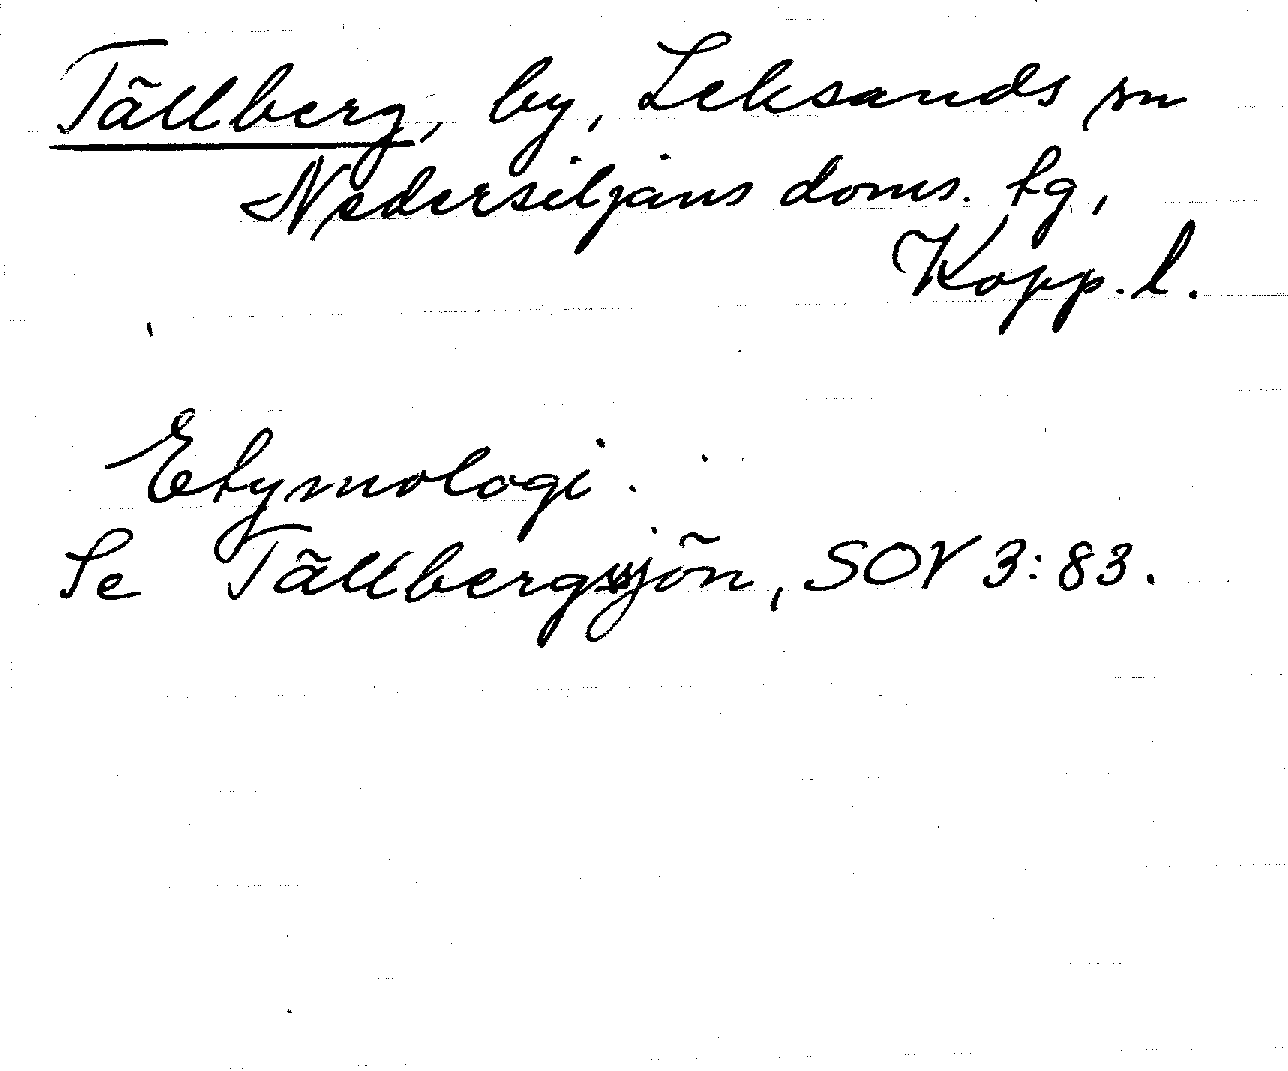 Tällberg, by, Leksands sn
Nedersiljans doms. tg,
Kopp. l.
Etymologi.
Se Tällbergssjön, SOV 3:83.